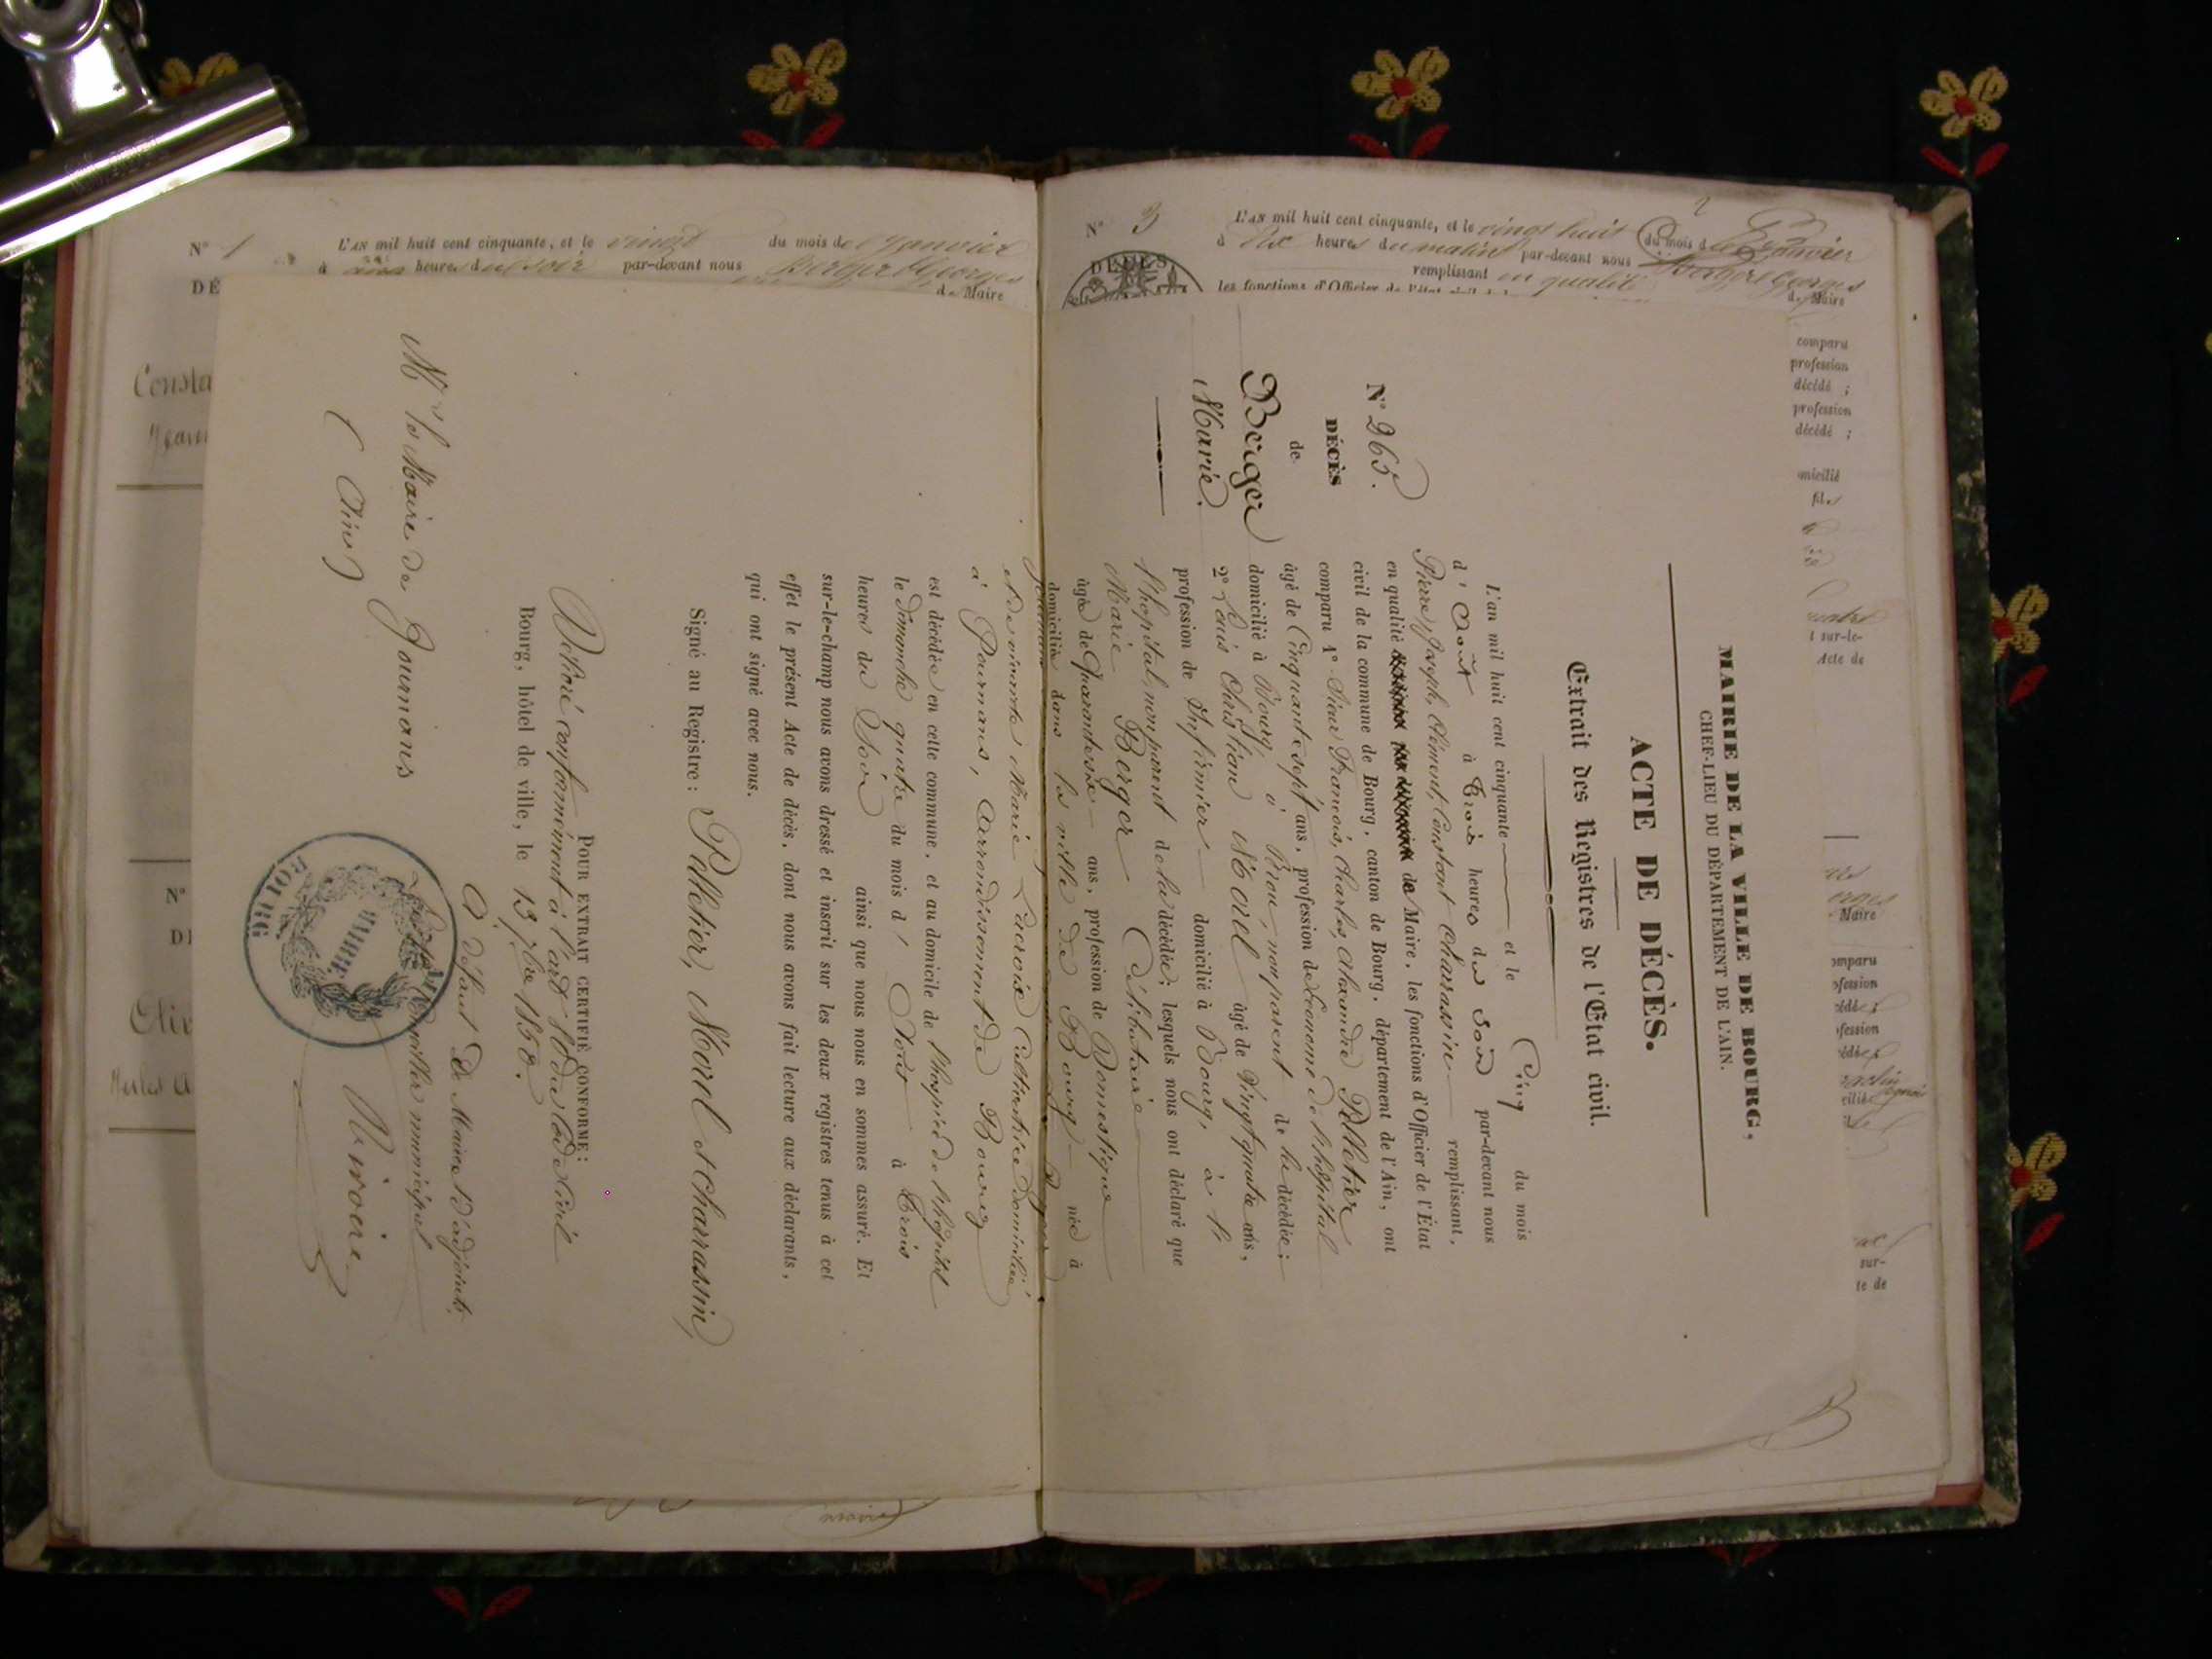 N° 1
L'AN mil huit cent cinquante, et le vingt du mois de Janvier
heures du soir par-devant nous Berger Georges
de Maire
DÉ
Consta
N°
DÉ
N° 3
L'AN mil huit cent cinquante, et le vingt huit du mois de Janvier
à dix heures du matin par-devant nous Berger Georges
remplissant en qualité de Maire
DÉCÈS
comparu
profession
décédé ;
profession
décédé ;
omicilié
fils
t sur-le-
Acte de
Maire
omparu
ofession
cédé ;
ofession
sur-
te de
MAIRIE DE LA VILLE DE BOURG,
CHEF-LIEU DU DÉPARTEMENT DE L'AIN.
ACTE DE DÉCÈS.
Extrait des Registres de l'Etat civil.
N° 265.
DÉCÈS
de
Berger
Marie.
L'an mil huit cent cinquante et le Cinq du mois
d'Août à trois heures du Soir par-devant nous
Pierre, Joseph, Clément, Constant Charassin remplissant,
en qualité de Maire, les fonctions d'Officier de l'État
civil de la commune de Bourg, canton de Bourg, département de l'Ain, ont
comparu 1° Sieur François, Charles, Alexandre Pelletier
âgé de Cinquante sept ans, profession de Econome de l'hôpital
domicilié à Bourg à Brou, non parent de la décédée;
2° Louis Christine Morel âgé de Vingt quatre ans,
profession de Infirmier domicilié à Bourg, à l'
hopital, non parent de la décédée; lesquels nous ont déclaré que
Marie Berger Célibataire
âgée de Quarante ans, profession de Domestique née à
domiciliée dans la ville de Bourg
et de vivante Marie Lacroix Cultivatrice domiciliée
à Journans, Arrondissement de Bourg
est décédée en cette commune, et au domicile de l'hospice de l'hôpital
le dimanche quatre du mois d'Août à trois
heures du Soir ainsi que nous nous en sommes assuré. Et
sur-le-champ nous avons dressé et inscrit sur les deux registres tenus à cet
effet le présent Acte de décès, dont nous avons fait lecture aux déclarants,
qui ont signé avec nous.
Signé au Registre: Pelletier, Morel et Charrassin,
POUR EXTRAIT CERTIFIÉ CONFORME:
Délivré conformément à l'art. 80 du Code Civil
Bourg, hôtel de ville, le 13 7bre 1850.
A défaut de Maire et d'adjoints,
Le Conseiller municipal
BOURG
MAIRIE
Mr le Maire de Journans
(Ain)